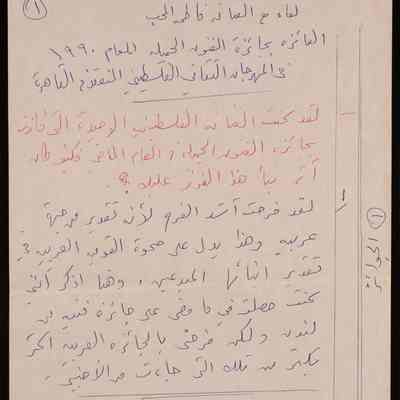 (١)
لقاء مع الفنانه فاطمه المحب
الفائزه بجائزة الفنون الجميله للعام ١٩٩٠
في المهرجان الثقافي الفلسطيني المنعقد في القاهرة
لقد كنت الفنانه الفلسطينيه الوحيدة التي فازت
بجائزه الفنون الجميله في العام الماضي فكيف كان
أثر نبأ هذا الفوز عليك ؟
لقد فرحت أشد الفرح لأن تقدير من جهة
عربيه وهذا يدل على صحوة القوى العربيه في
تقدير ابنائها المبدعين ، وهنا اذكر انني
كنت حصلت في ما مضى على جائزة فنيه من
لندن ولكن فرحتي بالجائزه العربيه اكثر
بكثير من تلك التي جاءت من الأجنبي
(١) الجوائز